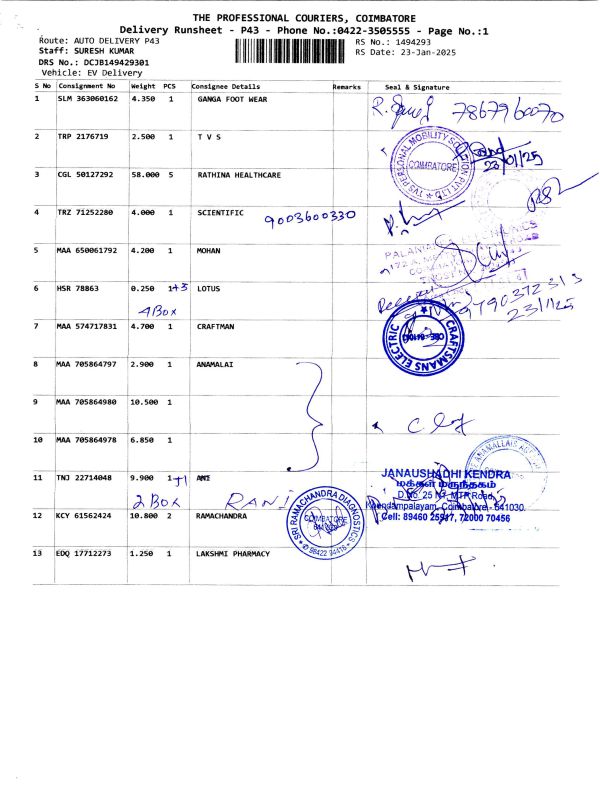 THE PROFESSIONAL COURIERS, COIMBATORE
Delivery Runsheet - P43 - Phone No.:0422-3505555 - Page No.:1
Route: AUTO DELIVERY P43 RS No.: 1494293
Staff: SURESH KUMAR RS Date: 23-Jan-2025
DRS No.: DCJB149429301
Vehicle: EV Delivery
S No Consignment No Weight PCS Consignee Details Remarks Seal & Signature
1 SLM 363060162 4.350 1 GANGA FOOT WEAR 7867960070
2 TRP 2176719 2.500 1 T V S
TVS PERSONAL MOBILITY SOLUTION PVT LTD
COIMBATORE
23/01/25
3 CGL 50127292 58.000 5 RATHINA HEALTHCARE
4 TRZ 71252280 4.000 1 SCIENTIFIC 9003600330
5 MAA 650061792 4.200 1 MOHAN
6 HSR 78863 0.250 1+3 LOTUS 9790372313
4 BOX 23/1/25
7 MAA 574717831 4.700 1 CRAFTMAN
CRAFTSMANS ELECTRIC
8 MAA 705864797 2.900 1 ANAMALAI
9 MAA 705864980 10.500 1
10 MAA 705864978 6.850 1
11 TNJ 22714048 9.900 1+1 ANI
2 BOX RANI
JANAUSHADHI KENDRA
மக்கள் மருந்தகம்
D.No. 25 N3, MTP Road,
Coimbatore - 641030.
Cell: 89460 25947, 72000 70456
12 KCY 61562424 10.800 2 RAMACHANDRA
SRI RAMACHANDRA DIAGNOSTICS
COIMBATORE
13 EDQ 17712273 1.250 1 LAKSHMI PHARMACY